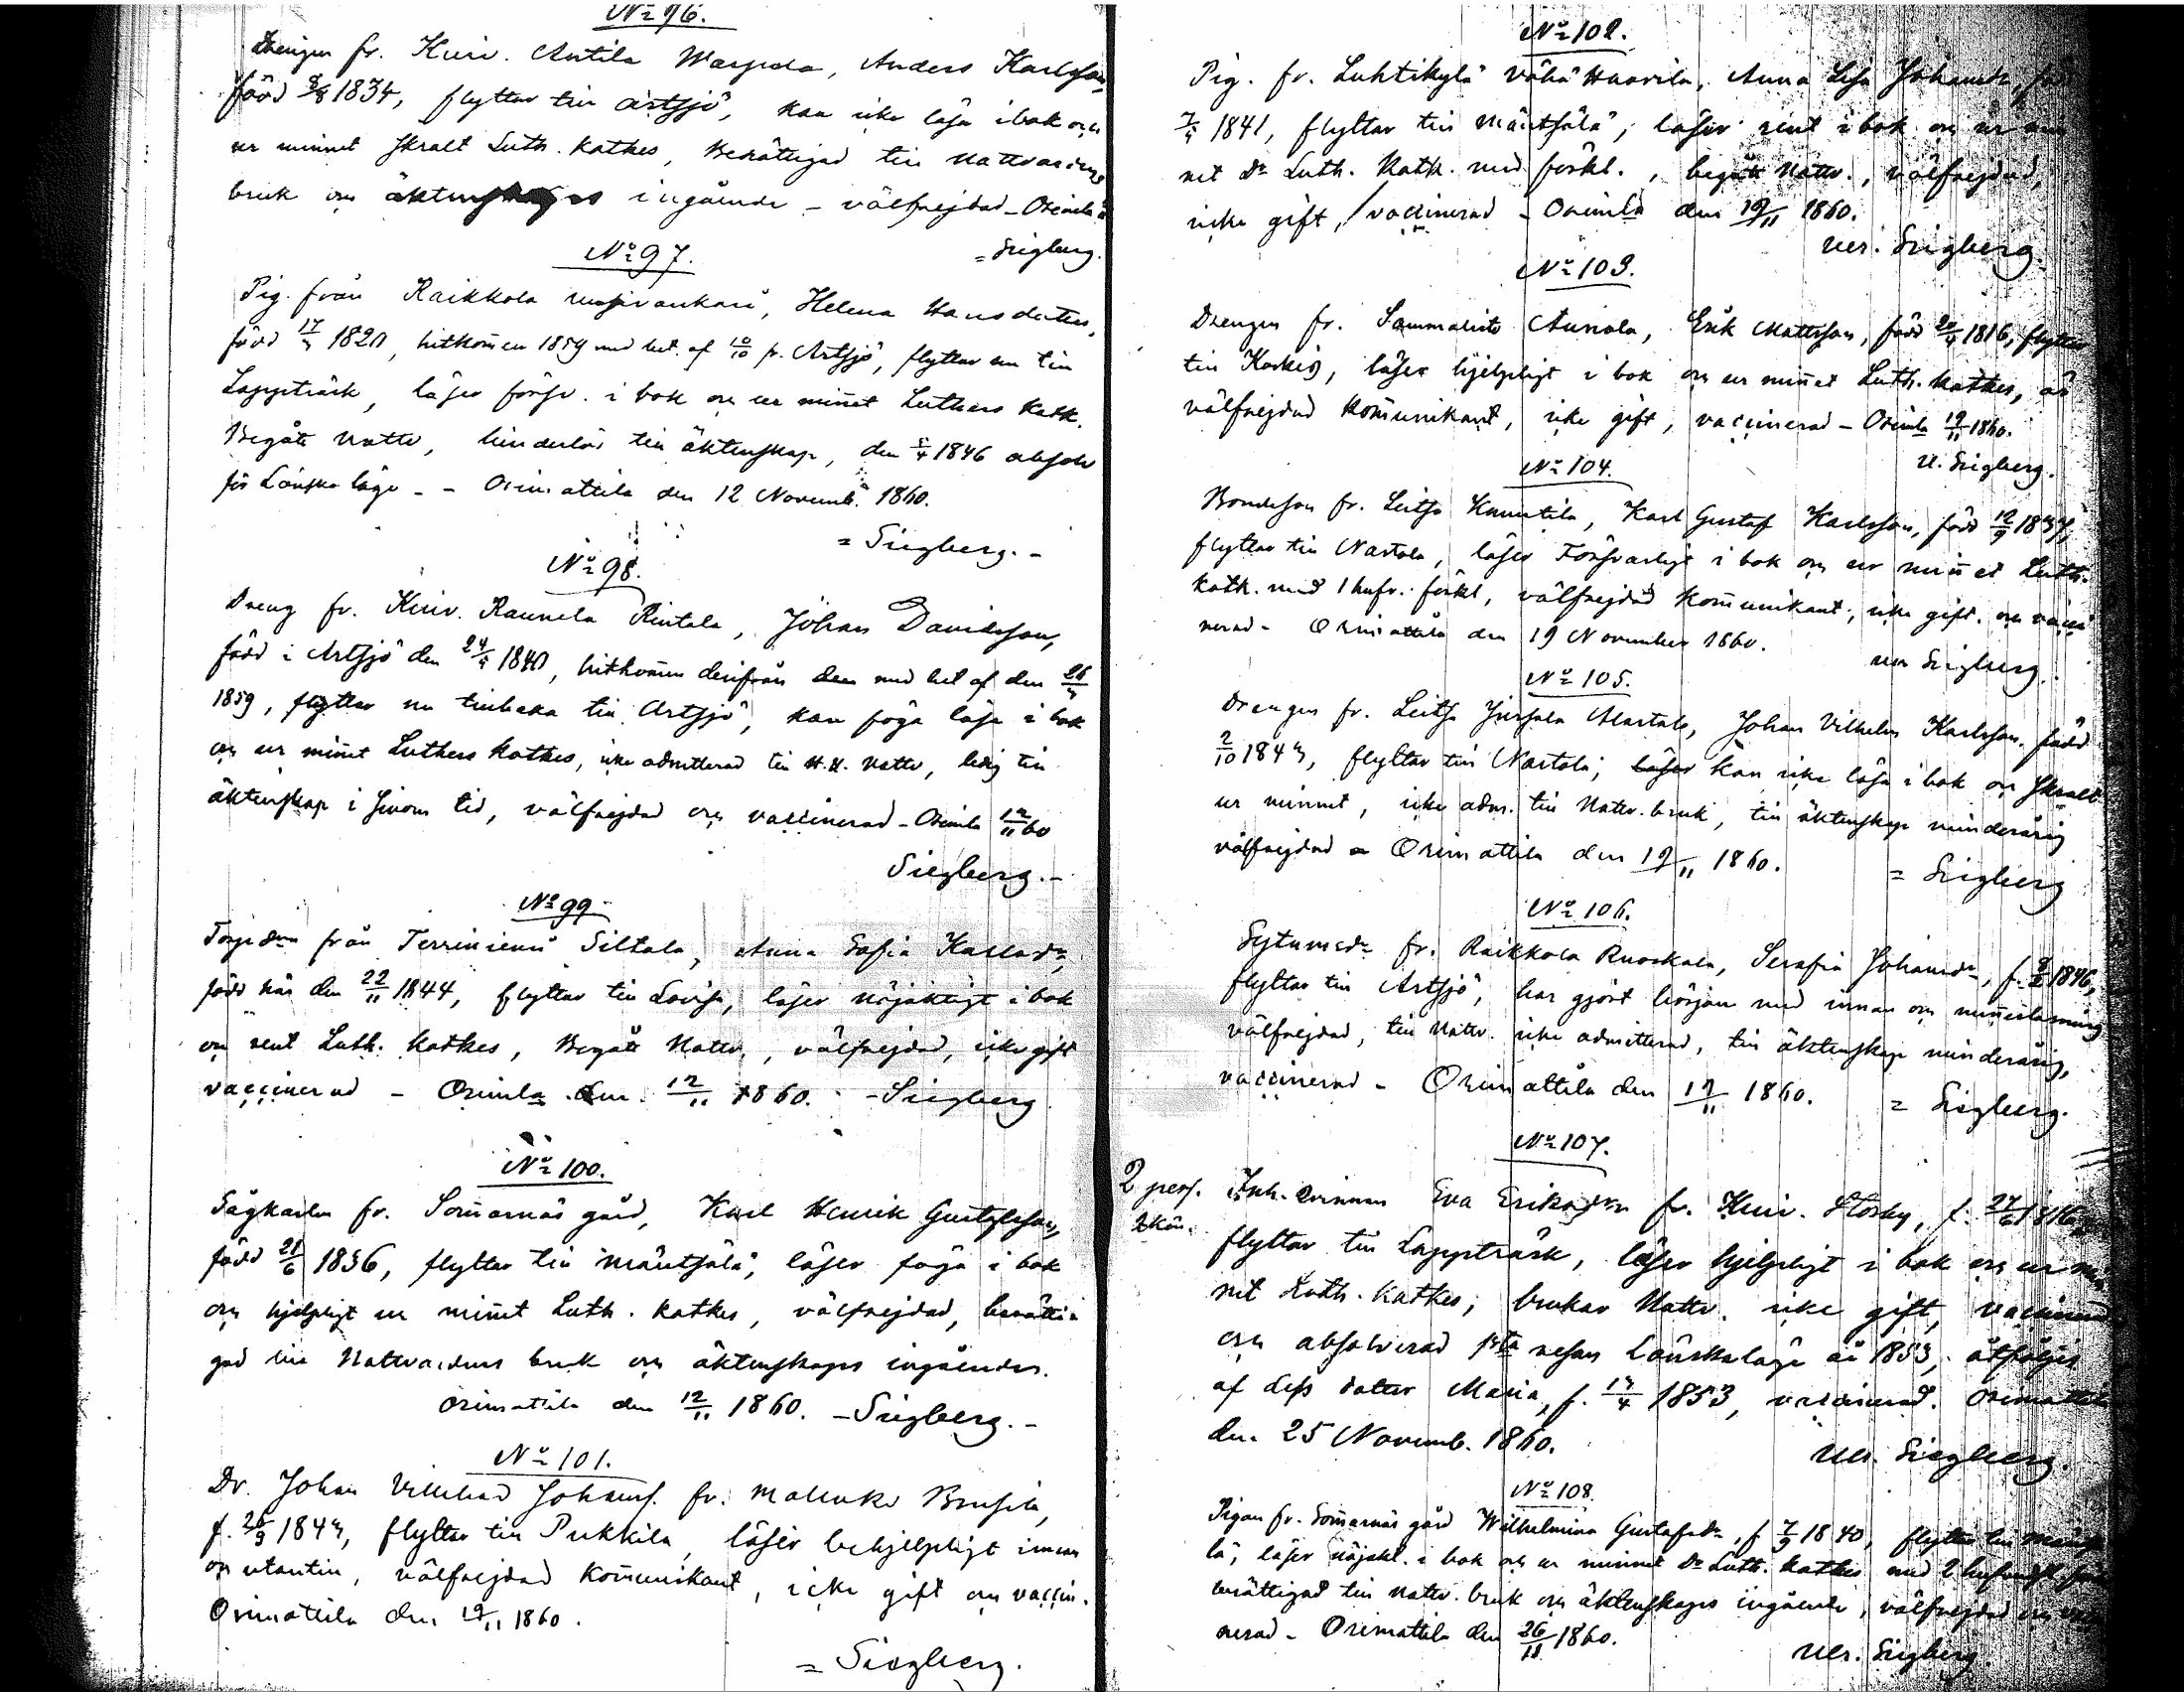 No 96.
Drengen fr. Kuiv. Antila Marjeda, Anders Karlsson,
född 8/8 1834, flyttar till Artsjö, kan icke läsa i bok och
ur minnet skralt Luth. kathes, Berättigad till Nattvardens
bruk och äktenskaps ingående - välfrejdad - Orimla
= Siegberg.
No 97.
Pig. från Raikkola, Helena Hansdotter,
född 1820, hitkom̄en 1859 med bet. af 10/10 fr. Artsjö, flyttar nu till
Lappträsk, läser försv. i bok och ur min̄et Luthers Kath.
Begått Nattv, hinderlös till äktenskap, den 1846 absolv
för Lönska läge - - Orimattila den 12 Novemb. 1860.
= Siegberg. -
No 98.
Dreng fr. Kuiv. Raunela Rintala, Johan Davidsson,
född i Artsjö den 24/4 1840, hitkom̄en derifrån med bet af den 26
1859, flyttar nu tillbaka till Artsjö, kan föga läsa i bok
och ur min̄et Luthers kathes, icke admitterad till H.H. Nattv, ledig till
äktenskap i sinom tid, välfrejdad och vaccinerad - Orimla 12/11 60
Siegberg. -
No 99
från Terriniemi Siltala, Anna Sofia Karlsdr,
född här den 22/11 1844, flyttar till Lovisa, läser nöjaktigt i bok
och rent Luth. kathes, Begått Nattv., välfrejdad, icke gift
vaccinerad - Orimla den 12/11 1860. - Siegberg
No 100.
Sågkarlen fr. Som̄arnäs gård, Karl Henrik Gustafsson,
född 21/6 1836, flyttar till Mäntsälä, läser föga i bok
och hjelpligt ur min̄et Luth. kathes, välfrejdad, berätti-
gad till Nattvardens bruk och äktenskaps ingående.
Orimattila den 12/11 1860. - Siegberg. -
No 101.
Dr. Johan Villehad Johanss. fr. Mallusk
f. 1843, flyttar till Pukkila, läser behjelpligt innan
och utantill, välfrejdad kom̄unikant, icke gift och vaccin.
Orimattila den 19/11 1860.
= Siegberg.
No 102.
Pig. fr. Luhtikylä Vähä Huovila, Anna Lisa Johansdr,
1841, flyttar till Mäntsälä, läser rent i bok och ur min
net Dr Luth. Kath. med förkl., begått Nattv., välfrejdad,
icke gift, vaccinerad - Orimla den 19/11 1860.
Siegberg.
No 103.
Drengen fr. Sammalisto Aunola, Erik Mattsson, född 20/4 1816, flyttar
till Koskis, läser hjelpligt i bok och ur min̄et Luth. kathes, är
välfrejdad kom̄unikant, icke gift, vaccinerad - Orimla 19/11 1860.
Siegberg.
No 104.
Bondeson fr. Leitsa Knuutila, Karl Gustaf Karlsson, född 12/9 1837,
flyttar till Nastola, läser Försvarligt i bok och ur min̄et Luth.
kath. med 1 hufv. förkl, välfrejdad kom̄unikant, icke gift och vacci
nerad - Orimattila den 19 November 1860.
Siegberg.
No 105.
Drengen fr. Leitsa, Johan Vilhelm Karlsson, född
2/10 1843, flyttar till Nastola, läser kan icke läsa i bok och skralt
ur minnet, icke adm. till Nattv. bruk, till äktenskap minderårig
välfrejdad - Orimattila den 19/11 1860.
= Siegberg
No 106.
Sytnmsdr fr. Raikkola Ruoskala, Serafia Johansdr, f. 1846,
flyttar till Artsjö, har gjort början med innan och min̄esläsning
välfrejdad, till Nattv. icke admitterad, till äktenskap minderårig,
vaccinerad - Orimattila den 19/11 1860.
= Siegberg.
No 107.
2 pers.
2 kön.
Inh. Qvinnan Eva Eriksdr fr. Kuiv. Storby, f. 27/6 1816,
flyttar till Lappträsk, läser hjelpligt i bok och ur min
net Luth. kathes, brukar Nattv. icke gift, vaccinerad
och absolverad 1sta resan Lönskaläge år 1853, åtföljes
af dess dotter Maria, f. 1853, vaccinerad. Orimattila
den 25 Novemb. 1860.
Siegberg.
No 108.
Pigan fr. Som̄arnäs gård Wilhelmina Gustafsdr, f 7/9 1840, flyttar till Mänts
lä, läser nöjakt. i bok och ur minnet Dr Luth. kathes med 2 hufvudst.
berättigad till Nattv. bruk och äktenskaps ingående, välfrejdad och
nerad - Orimattila den 26/11 1860.
Siegberg.